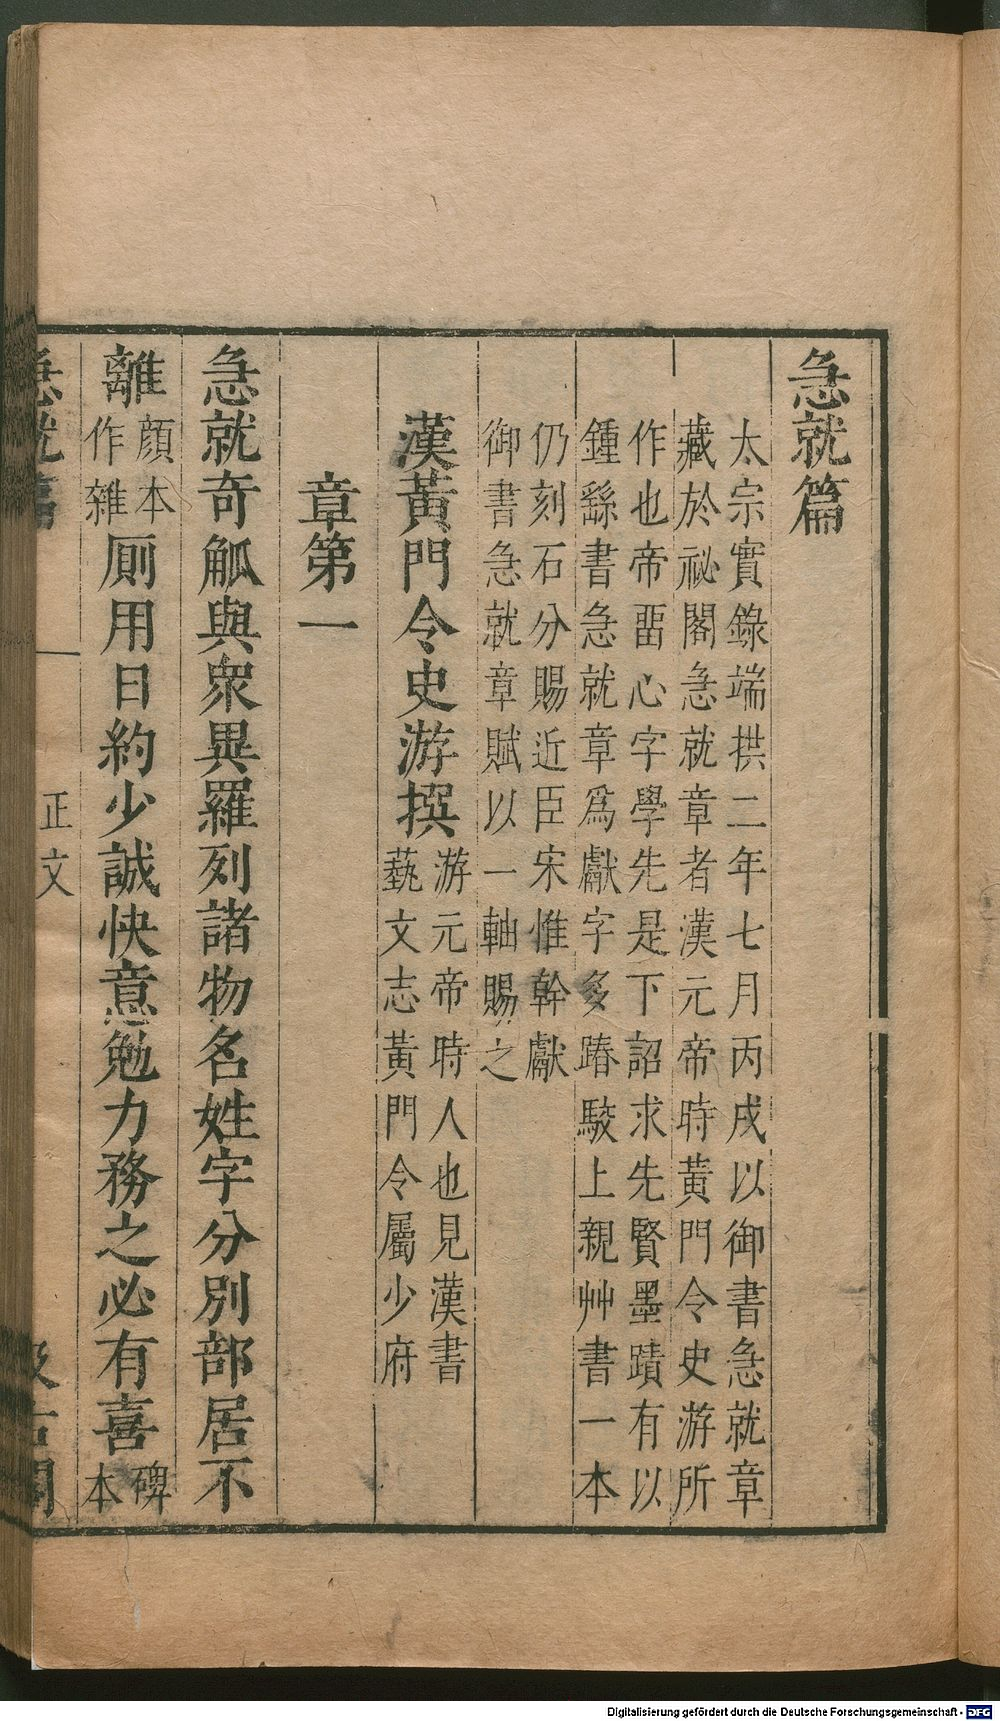 急就篇
太宗實錄端拱二年七月丙戌以御書急就章
藏於祕閣急就章者漢元帝時黃門令史游所
作也帝畱心字學先是下詔求先賢墨蹟有以
鍾繇書急就章爲獻字多踳駮上親艸書一本
仍刻石分賜近臣宋惟幹獻
御書急就章賦以一軸賜之
漢黃門令史游撰
游元帝時人也見漢書
藝文志黃門令屬少府
章第一
急就奇觚與衆異羅列諸物名姓字分別部居不
離
顏本
作雜
厠用日約少誠快意勉力務之必有喜
碑
本
急就篇
一
正文
汲古閣
Digitalisierung gefördert durch die Deutsche Forschungsgemeinschaft - DFG